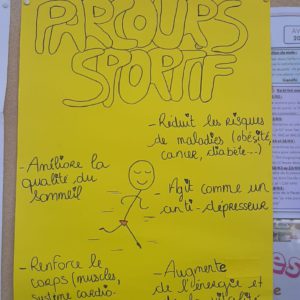 PARCOURS
SPORTIF
- Réduit les risques
de maladies (obésité,
cancer, diabète...)
- Améliore la
qualité du
sommeil
- Agit comme un
anti-dépresseur
- Renforce le
corps (muscles,
système cardio-
- Augmente
de l'énergie et